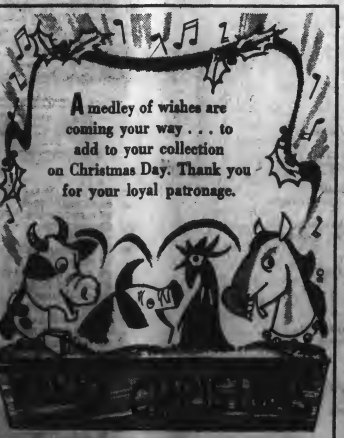 A medley of wishes are
coming your way . . . to
add to your collection
on Christmas Day. Thank you
for your loyal patronage.